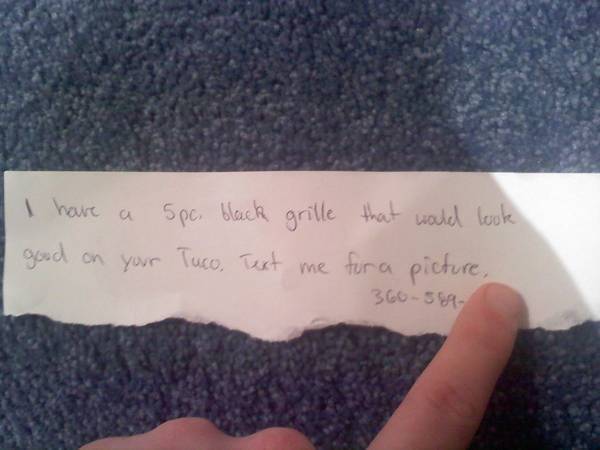 I have a 5pc. black grille that would look
good on your Taco. Text me for a picture.
360-589-